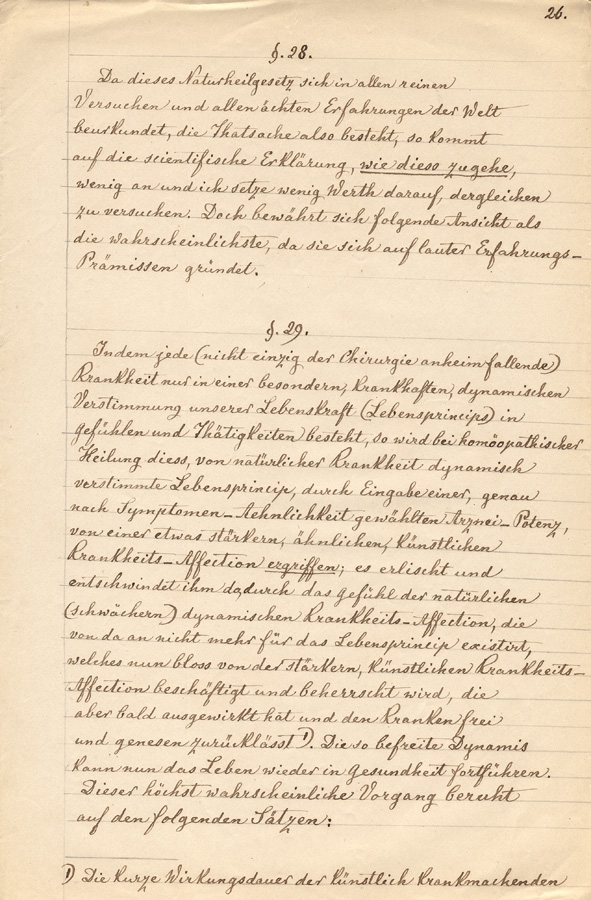 26.
§. 28.
Da dieses Naturheilgesetz sich in allen reinen
Versuchen und allen ächten Erfahrungen der Welt
beurkundet, die Thatsache also besteht, so kommt
auf die scientifische Erklärung, wie diess zugehe,
wenig an und ich setze wenig Werth darauf, dergleichen
zu versuchen. Doch bewährt sich folgende Ansicht als
die wahrscheinlichste, da sie sich auf lauter Erfahrungs-
Prämissen gründet.
§. 29.
Indem jede (nicht einzig der Chirurgie anheim fallende)
Krankheit nur in einer besondern, krankhaften, dynamischen
Verstimmung unserer Lebenskraft (Lebensprincips) in
Gefühlen und Thätigkeiten besteht, so wird bei homöopathischer
Heilung diess, von natürlicher Krankheit dynamisch
verstimmte Lebensprincip, durch Eingabe einer, genau
nach Symptomen-Aehnlichkeit gewählten Arznei-Potenz,
von einer etwas stärkern, ähnlichen, künstlichen
Krankheits-Affection ergriffen; es erlischt und
entschwindet ihm dadurch das Gefühl der natürlichen
(schwächern) dynamischen Krankheits-Affection, die
von da an nicht mehr für das Lebensprincip existirt,
welches nun bloss von der stärkern, künstlichen Krankheits-
Affection beschäftigt und beherrscht wird, die
aber bald ausgewirkt hat und den Kranken frei
und genesen zurücklässt 1). Die so befreite Dynamis
kann nun das Leben wieder in Gesundheit fortführen.
Dieser höchst wahrscheinliche Vorgang beruht
auf den folgenden Sätzen:
1) Die kurze Wirkungsdauer der künstlich krankmachenden